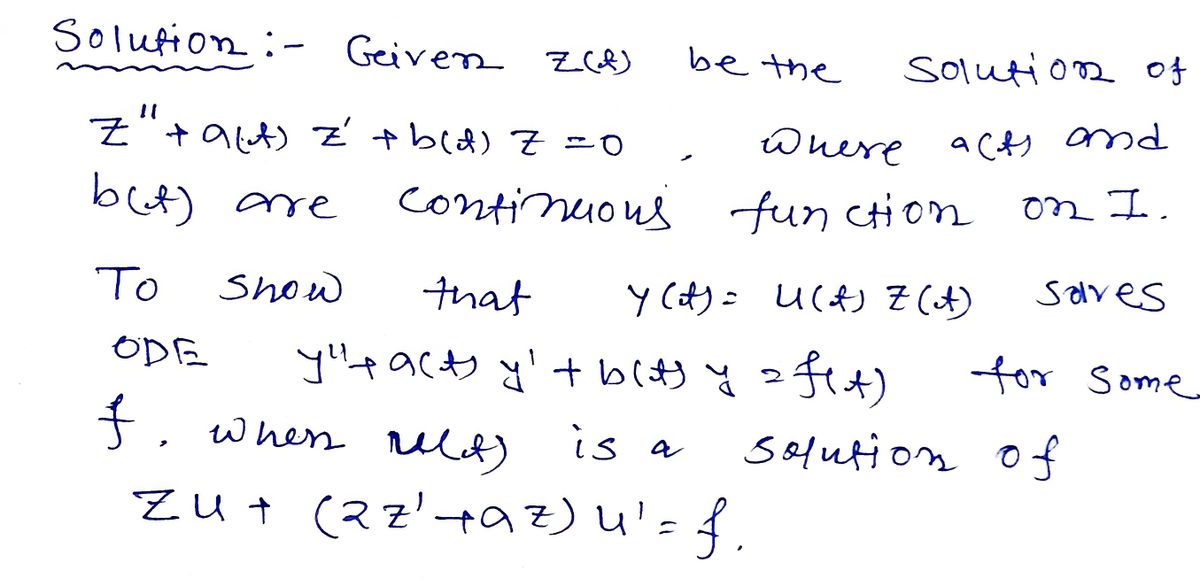 Solution :- Geiven z(t) be the solution of
z" + a(t) z' + b(t) z = 0 , where a(t) and
b(t) are continuous function on I.
To show that y(t) = u(t) z(t) solves
ODE y" + a(t) y' + b(t) y = f(t) for some
f. when u(t) is a solution of
zu + (2z' + az) u' = f.